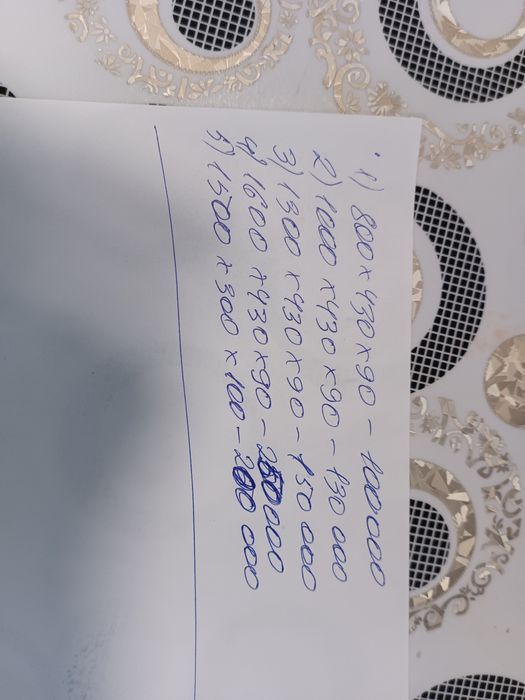 1) 800 x 430 x 90 - 100 000
2) 1000 x 430 x 90 - 130 000
3) 1300 x 430 x 90 - 150 000
4) 1600 x 430 x 90 - 200 000
5) 1500 x 300 x 100 - 200 000